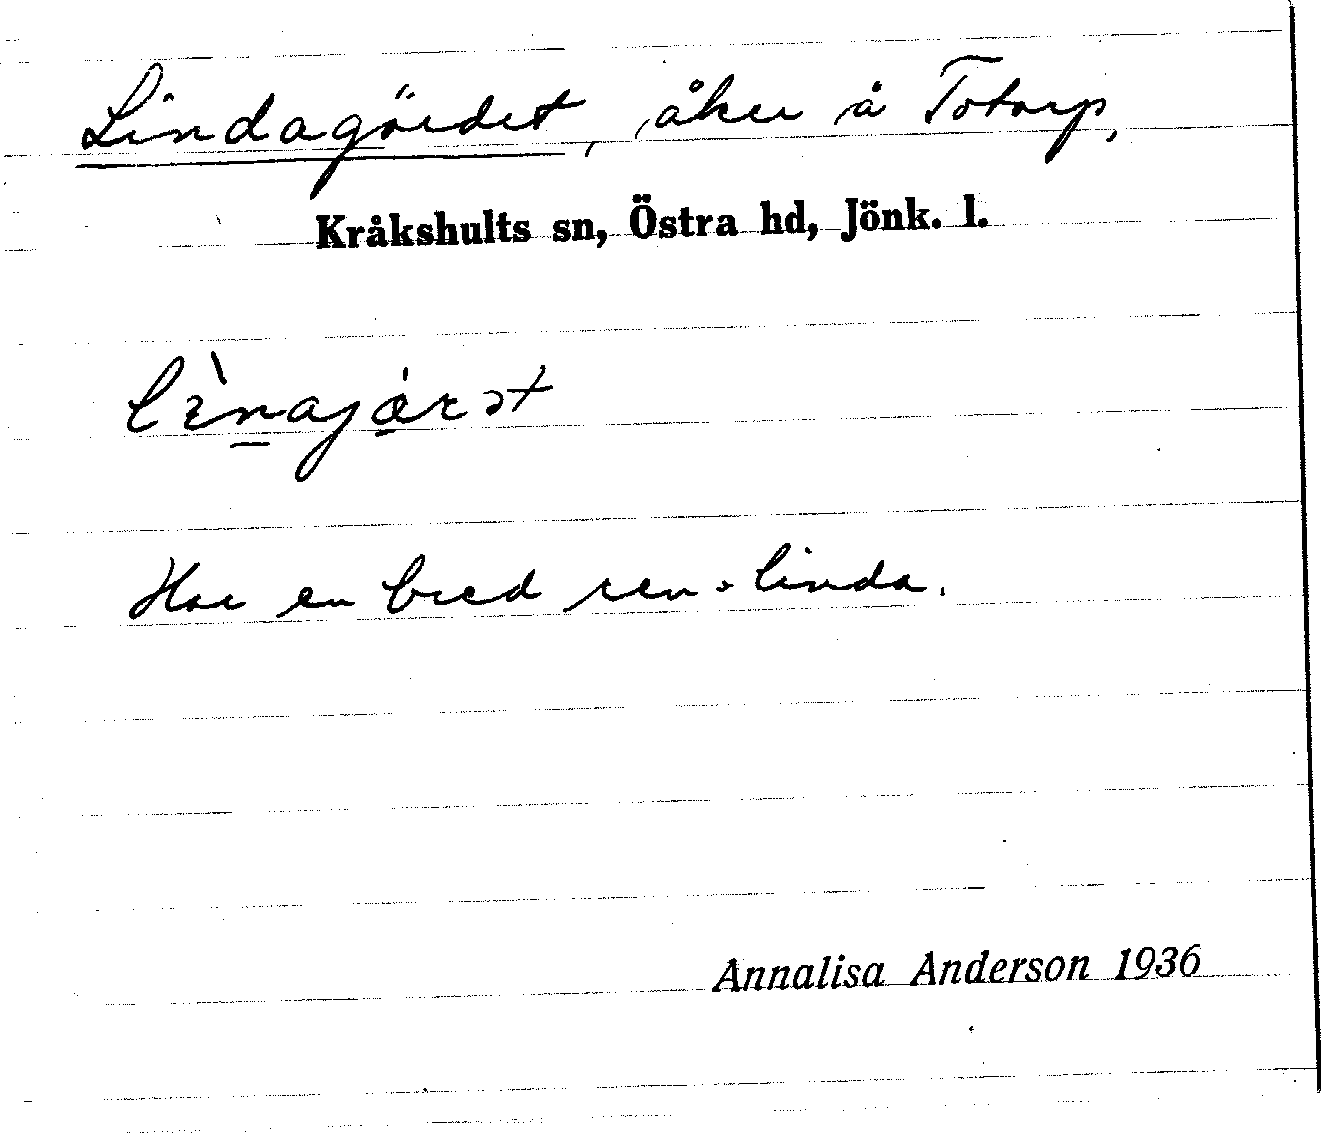 Lindagärdet, åker å Totorp,
Kråkshults sn, Östra hd, Jönk. l.
Har en bred ren = linda.
Annalisa Anderson 1936